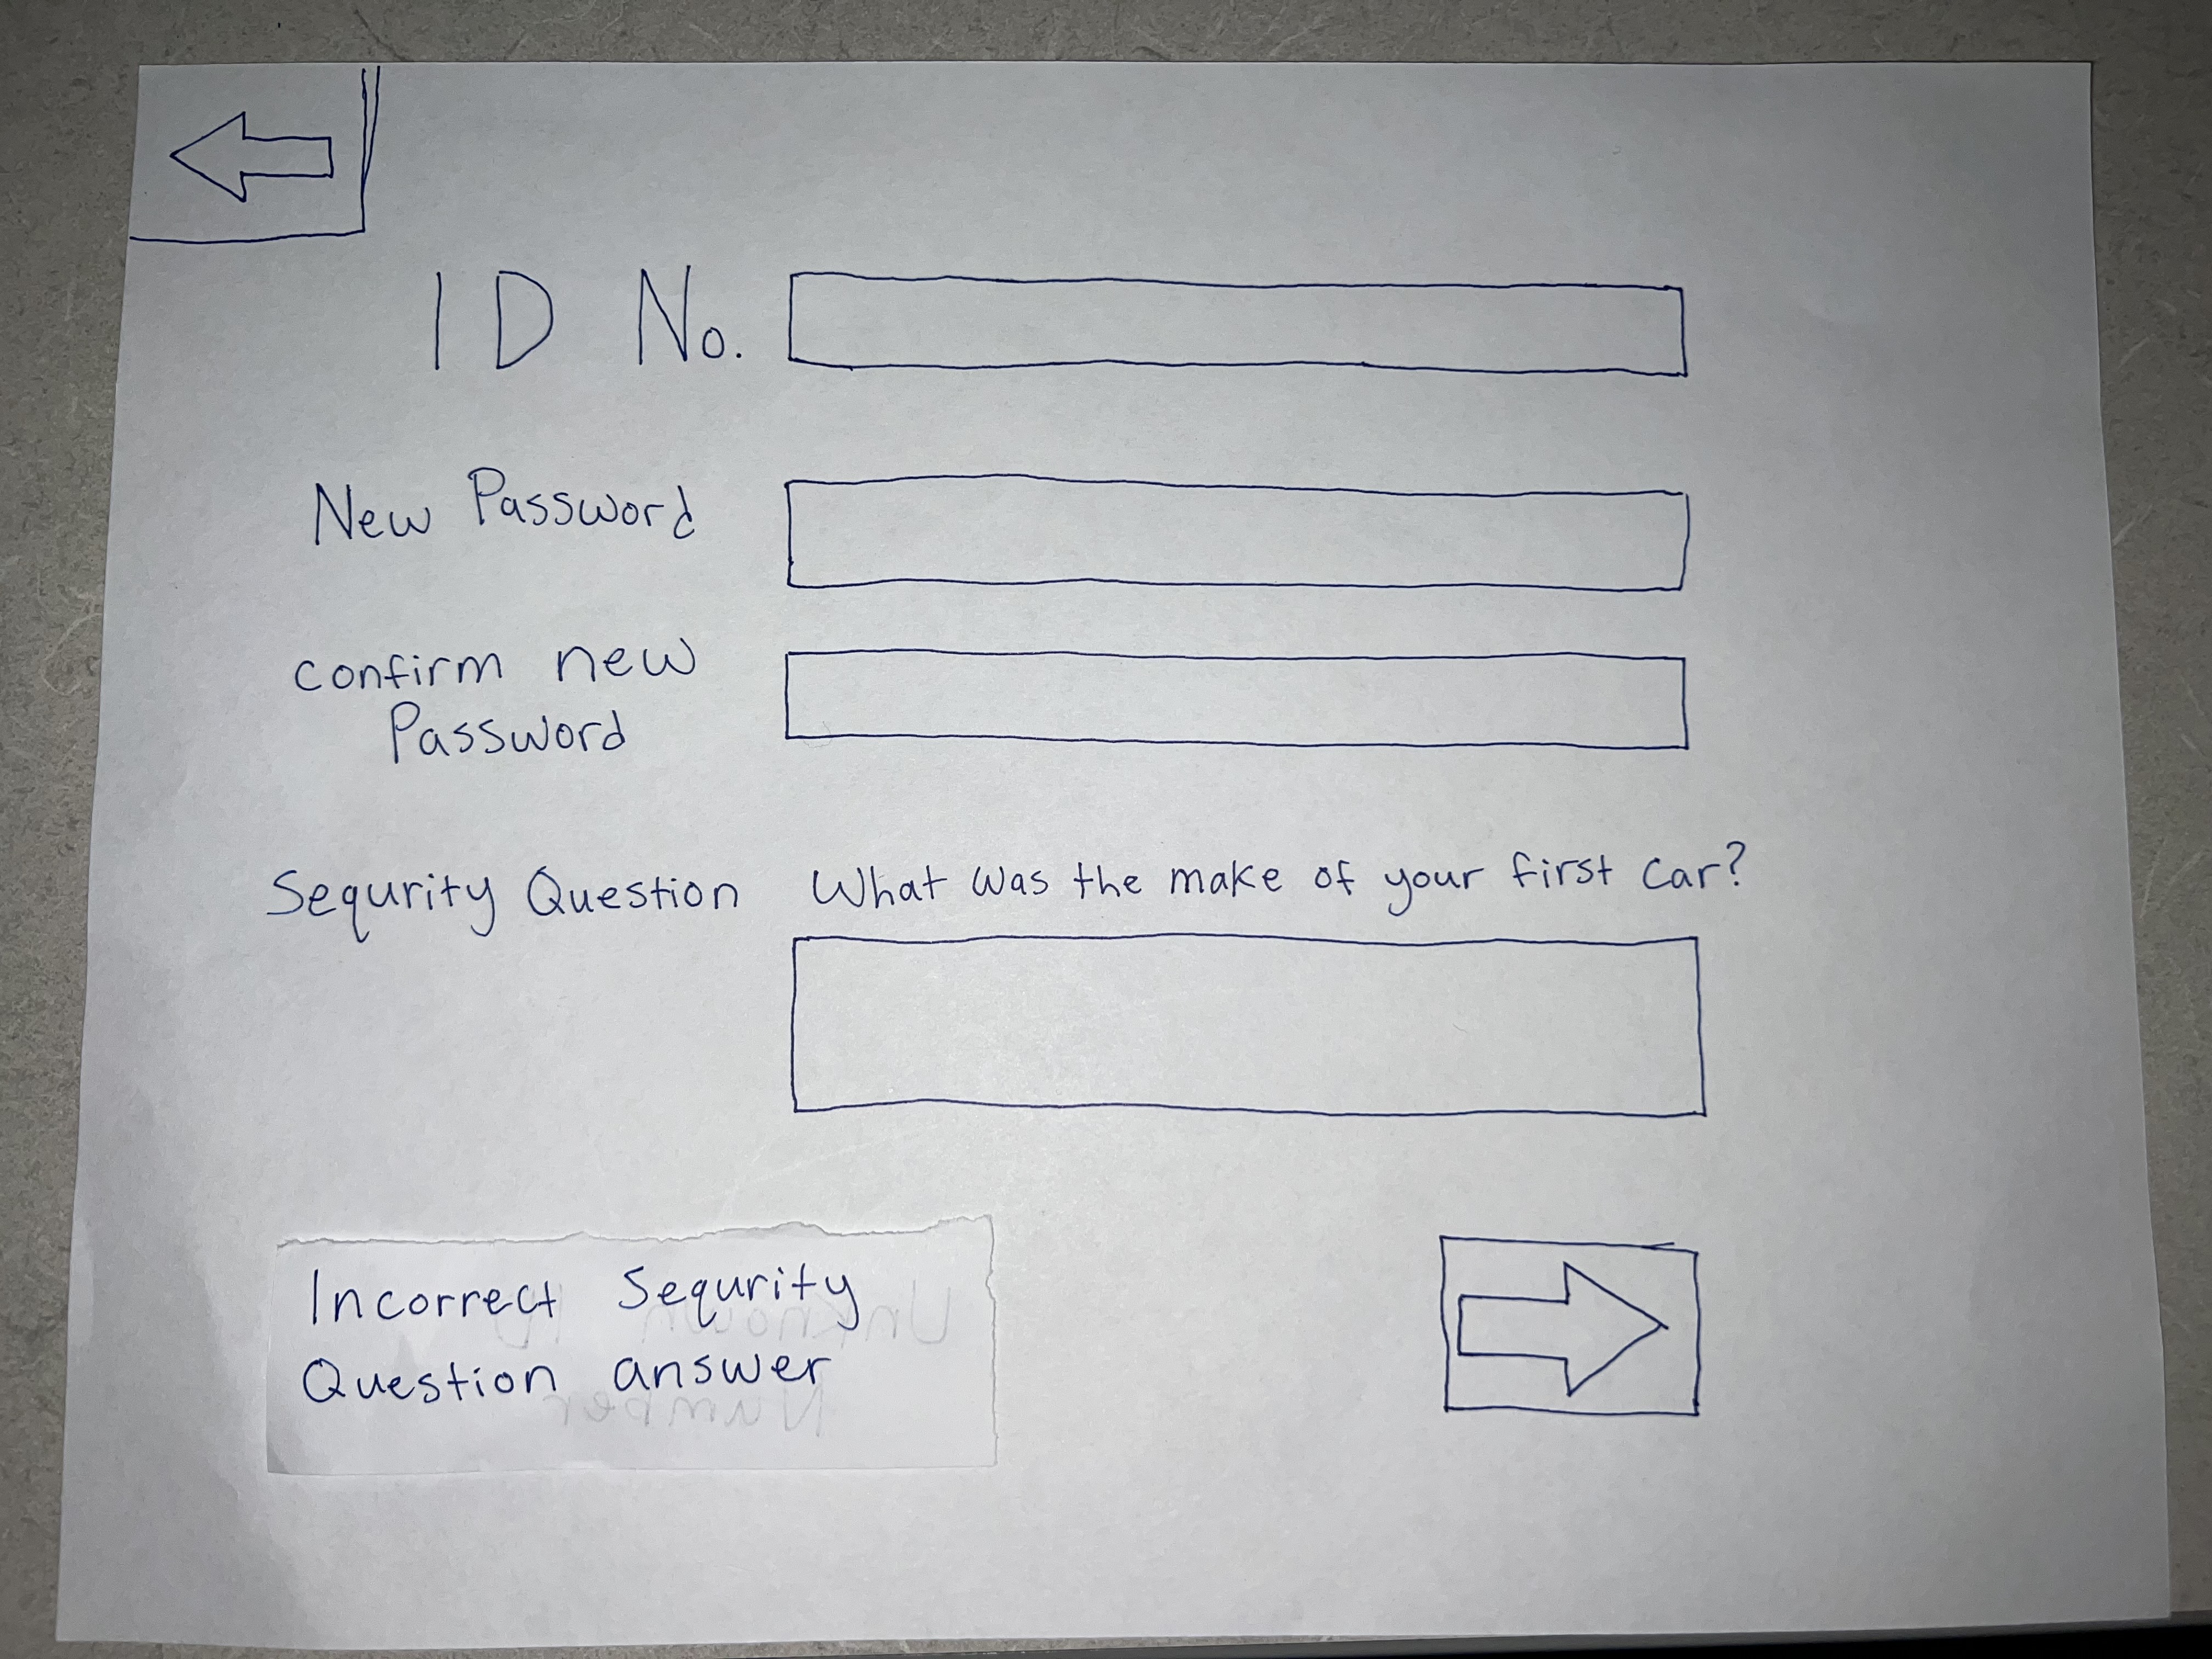 ID No.
New Password
confirm new
Password
Sequrity Question
What was the make of your first car?
Incorrect Sequrity
Question answer